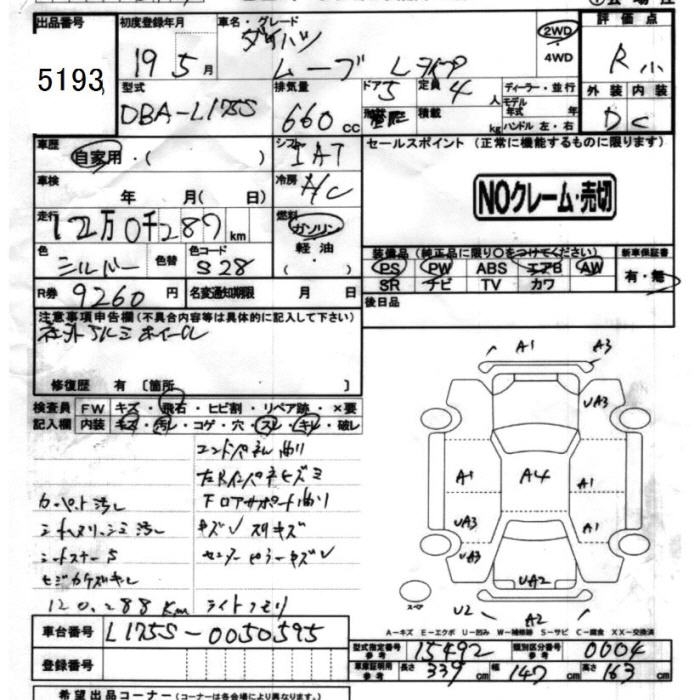 出品番号 初度登録年月 車名・グレード 評価点
5193 19 5月 ダイハツ ムーブ L 2WD・4WD R 小
型式 排気量 ドア 定員 ディーラー・並行 外装 内装
DBA-L175S 660cc 5 4人 モデル年式 年 D C
形状 積載 kg ハンドル 左・右
車歴 シフト セールスポイント (正常に機能するものに限ります)
自家用・( ) IAT
車検 年 月(日) 冷房 A/C
NOクレーム・売切
走行 12万0千287km 燃料 ガソリン 軽油・( )
色 シルバー 色替 色コード S28
装備品(純正品に限り○をつけてください) 新車保証書
PS PW ABS エアB AW 有・無
SR ナビ TV カワ
R券 9260円 名変通知期限 月 日 後日品
注意事項申告欄(不具合内容等は具体的に記入して下さい)
社外アルミホイール
修復歴 有 〔箇所 〕
検査員 FW キズ・飛石・ヒビ割・リペア跡・×要
記入欄 内装 キズ・汚レ・コゲ・穴・スレ・キレ・破レ
エンドパネル曲り
左Rインパネキズミ
カーペット汚レ フロアサポート曲り
キズV スリキズ
120,288Km ライトクモリ
A1 A3
UA3
A1 A4 A1
UA3 A1
UA3
UA2
スペア U2 A2
A-キズ E-エクボ U-凹み W-補修跡 S-サビ C-腐食 XX-交換済
車台番号 L175S-0050595
型式指定番号 参考 15492 類別区分番号 参考 0004
登録番号 車庫証明用 参考 長さ 339cm 幅 147cm 高さ 163cm
希望出品コーナー (コーナーは各会場により異なります。)